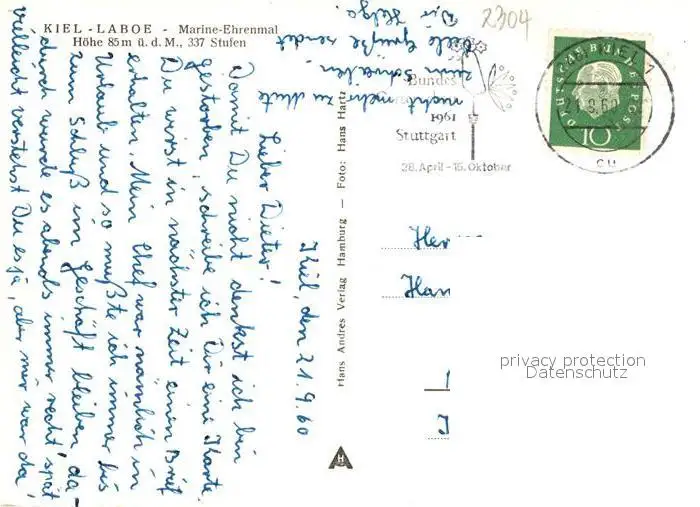 KIEL - LABOE - Marine-Ehrenmal
Höhe 85 m ü. d. M., 337 Stufen
Kiel, den 21.9.60
Lieber Dieter!
Damit Du nicht denkst ich bin
gestorben, schreibe ich Dir eine Karte.
Du wirst in nächster Zeit einen Brief
erhalten. Mein Chef war nämlich in
Urlaub und so mußte ich immer bis
zum Schluß im Geschäft bleiben, da-
durch wurde es abends immer recht spät
vielleicht verstehst Du es ja, aber mir war da
nicht mehr zu Mute
zum schreiben
Viele Grüße sendet
Dir Helga.
Hans Andres Verlag Hamburg — Foto: Hans Hartz
H
2304
Bundes
1961
Stuttgart
28. April - 15. Oktober
DEUTSCHE BUNDESPOST
10
cu
Her
Han
privacy protection
Datenschutz